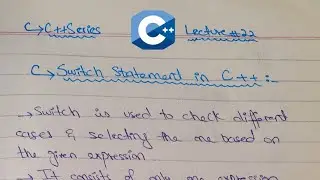 C → C++ Series
C++
Lecture #22
C → Switch Statement in C++ :-
→ Switch is used to check different
cases & selecting the one based on
the given expression.
→ It consists of only one expression